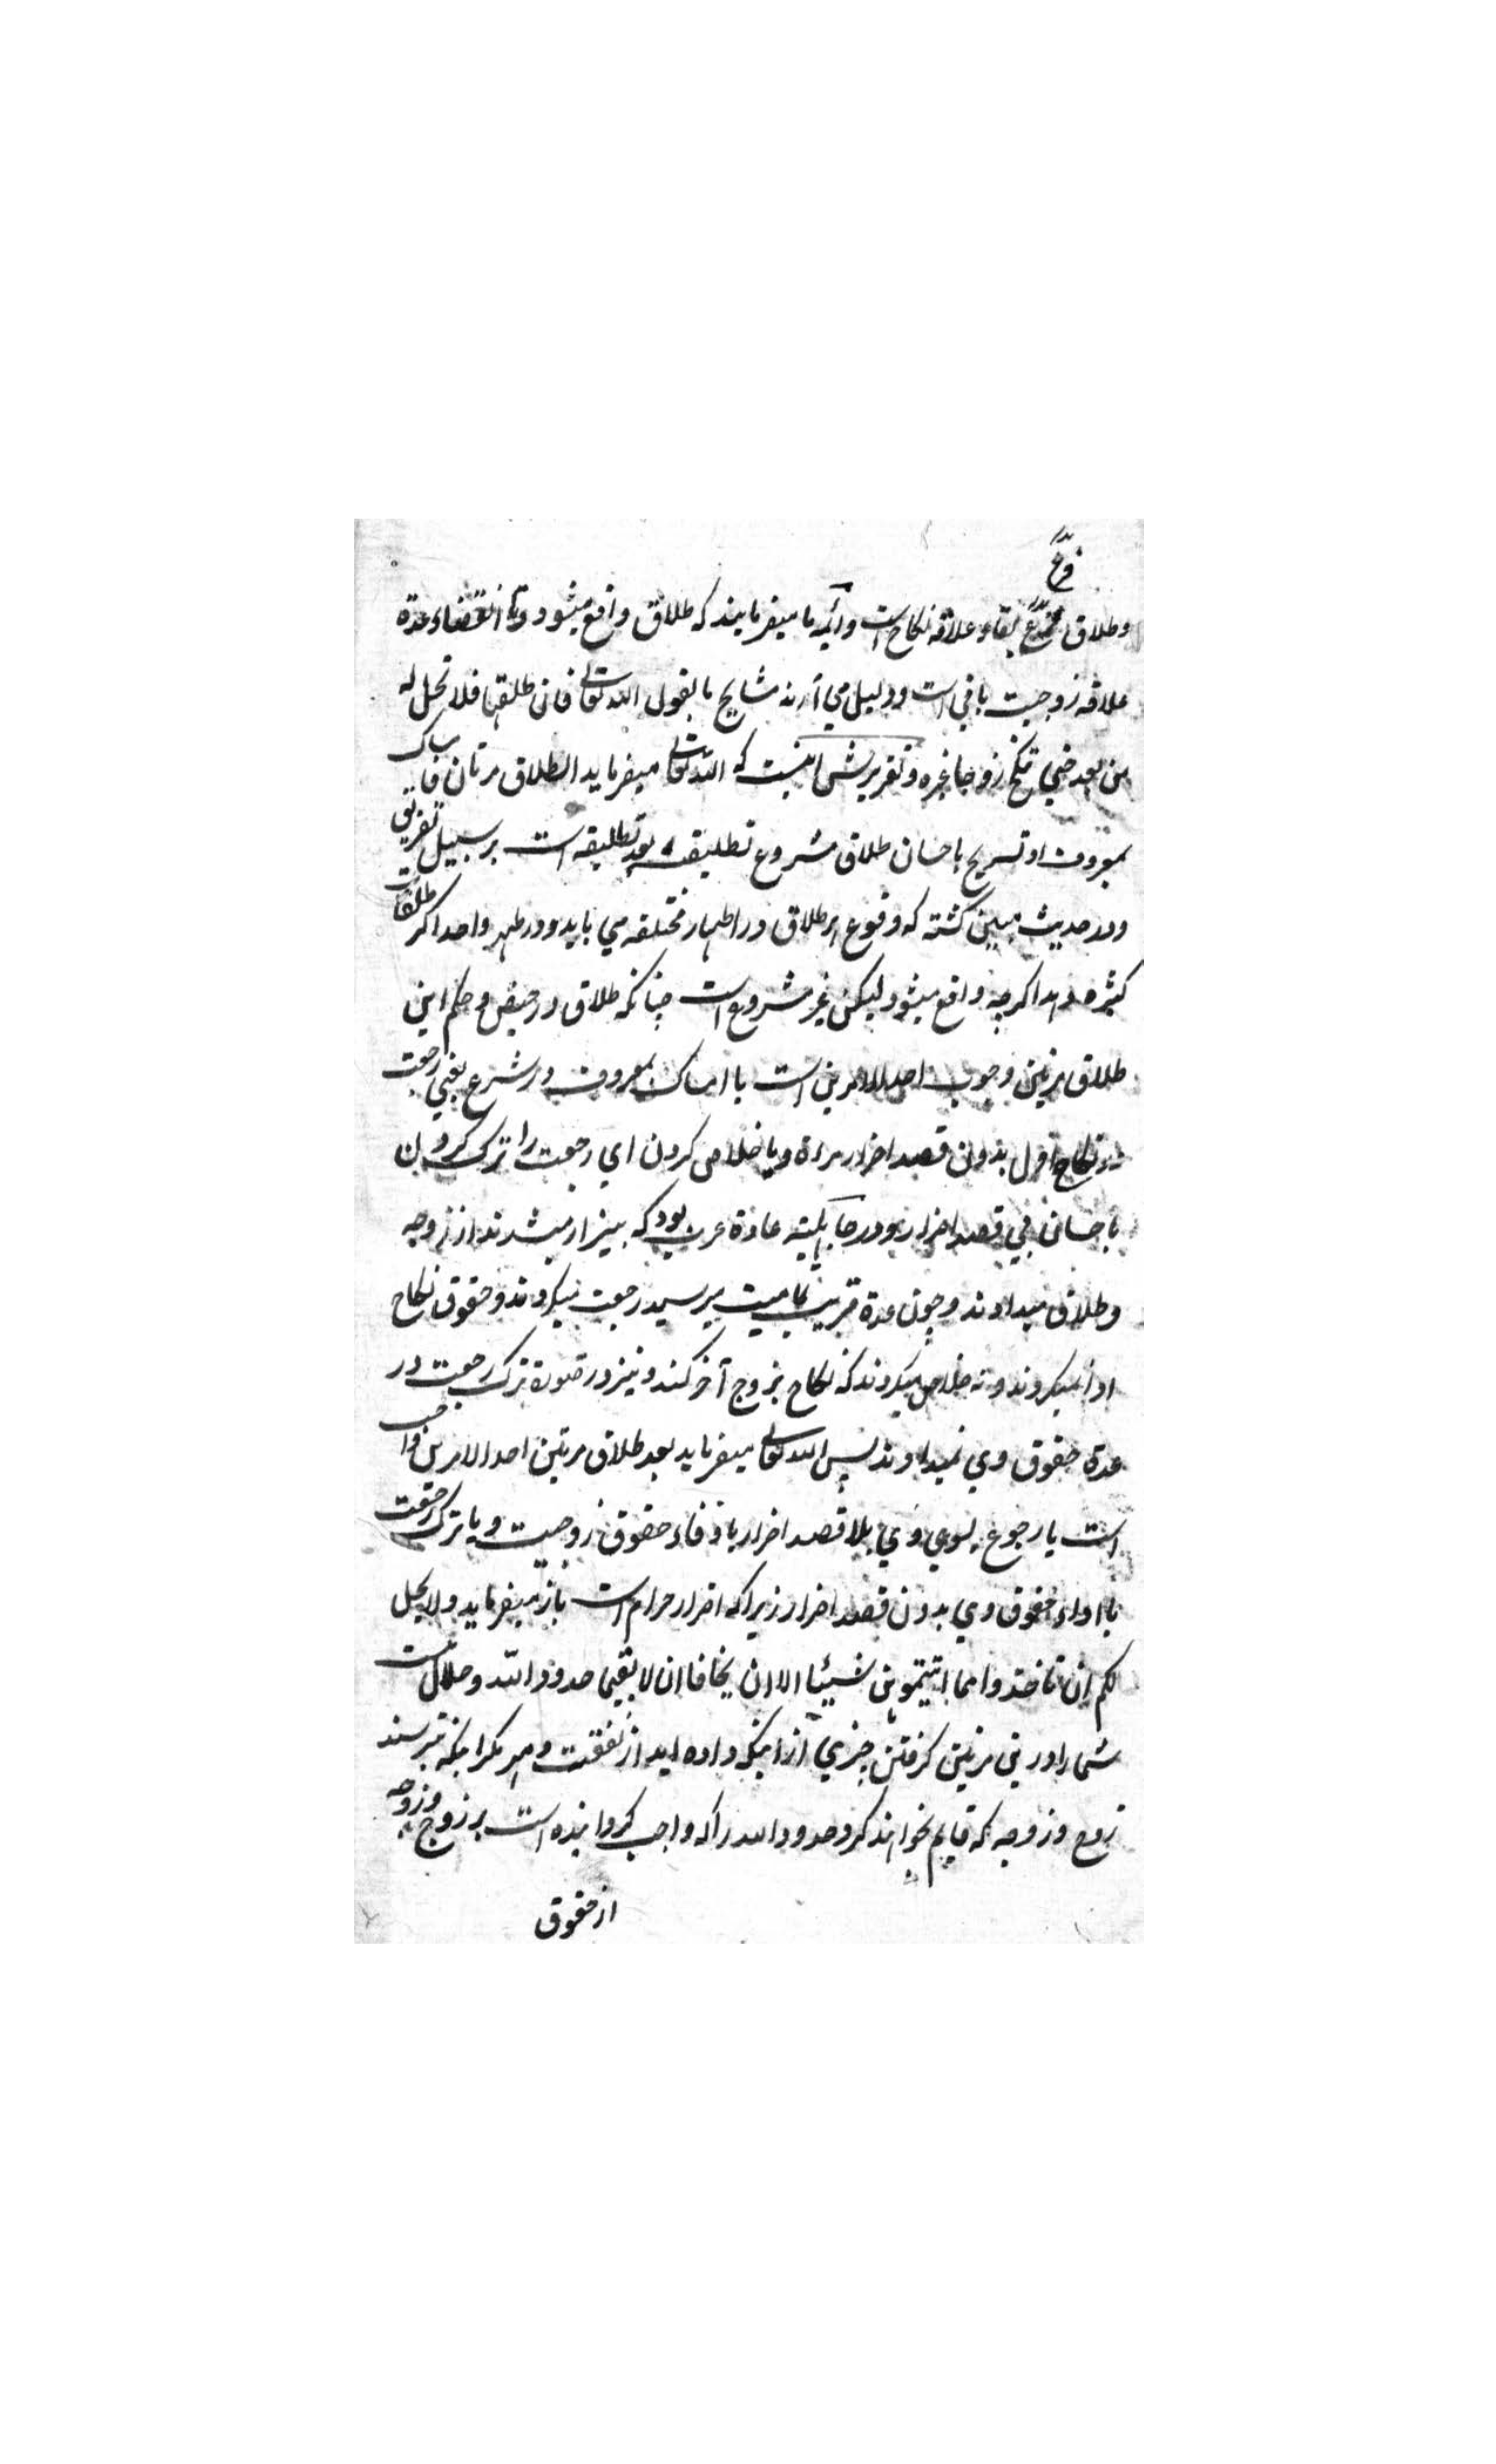 فرع
وطلاق فرع بقاء علاقه نكاح است وائمه ما ميفرمايند كه طلاق واقع ميشود وتا انقضاء عدة
علاقه زوجيت باقي است ودليل مي آرند مشايخ ما بقول الله تعالى فان طلقها فلا تحل له
من بعد حتي تنكح زوجا غيره وتقريرش اينست كه الله تعالى ميفرمايد الطلاق مرتان فامساك
بمعروف او تسريح باحسان طلاق مشروع تطليقه بعد تطليقه است بر سبيل تفريق
ودر حديث مبين گشته كه وقوع هر طلاق در اطهار مختلفه مي بايد ودر طهر واحد اكر طلقات
كثيره دهد اكرچه واقع ميشود ليكن غير مشروع است چنانكه طلاق در حيض وحكم اين
طلاق مرتين وجوب احد الامرين است يا امساك بمعروف در شرع يعني رجعت
نكاح اول بدون قصد اضرار مرءة ويا خلاص كردن اي رجعت را ترك كردن
باحسان بي قصد اضرار ودر جاهليته عادة عرب بود كه بيزار ميشدند از زوجه
وطلاق ميدادند وچون عدة قريب تماميت ميرسيد رجعت ميكردند وحقوق نكاح
ادا نميكردند ونه خلاص ميكردند كه نكاح بزوج آخر كند ونيز در صورة ترك رجعت در
عدة حقوق وي نميدادند پس الله تعالى ميفرمايد بعد طلاق مرتين احد الامرين واجب
است يا رجوع بسوي وي بلا قصد اضرار با وفاء حقوق زوجيت ويا ترك رجعت
با اداء حقوق وي بدون قصد اضرار زيراكه اضرار حرام است باز ميفرمايد ولا يحل
لكم ان تاخذوا مما اتيتموهن شيئا الا ان يخافا ان لا يقيما حدود الله وحلال نيست
شما را در مرتين گرفتن چيزي ازانيكه داده ايد از نفقت ومهر مگر اينكه بترسند
زوج وزوجه كه قايم نخواهند كرد حدود الله را كه واجب كردانيده است بر زوج وزوجه
از حقوق